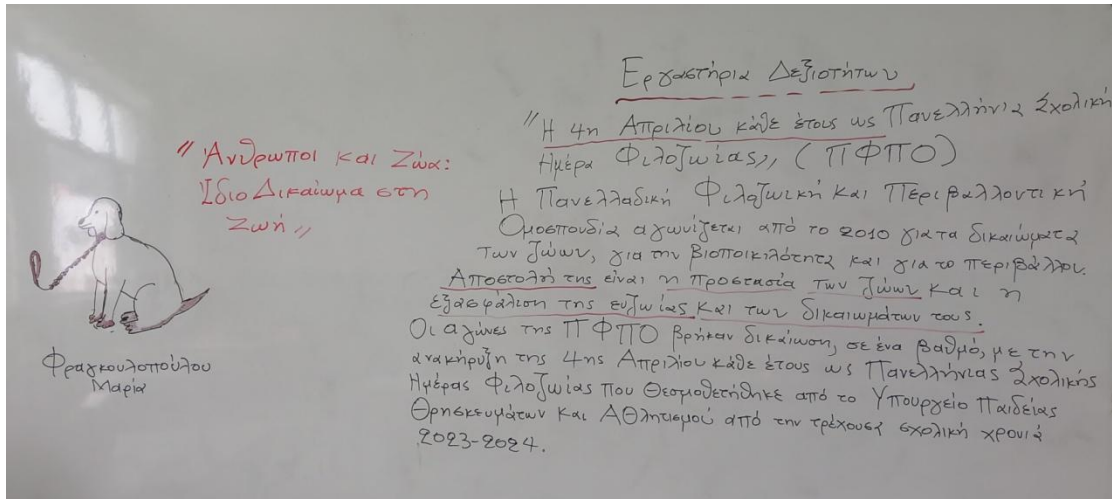 "Άνθρωποι και Ζώα:
Ίδιο Δικαίωμα στη
Ζωή"
Φραγκουλοπούλου
Μαρία
Εργαστήρια Δεξιοτήτων
"Η 4η Απριλίου κάθε έτους ως Πανελλήνια Σχολική
Ημέρα Φιλοζωίας" (ΠΦΠΟ)
Η Πανελλαδική Φιλοζωική και Περιβαλλοντική
Ομοσπονδία αγωνίζεται από το 2010 για τα δικαιώματα
των ζώων, για την βιοποικιλότητα και για το περιβάλλον.
Αποστολή της είναι η προστασία των ζώων και η
εξασφάλιση της ευζωίας και των δικαιωμάτων τους.
Οι αγώνες της ΠΦΠΟ βρήκαν δικαίωση, σε ένα βαθμό, με την
ανακήρυξη της 4ης Απριλίου κάθε έτους ως Πανελλήνιας Σχολικής
Ημέρας Φιλοζωίας που Θεσμοθετήθηκε από το Υπουργείο Παιδείας
Θρησκευμάτων και Αθλητισμού από την τρέχουσα σχολική χρονιά
2023-2024.